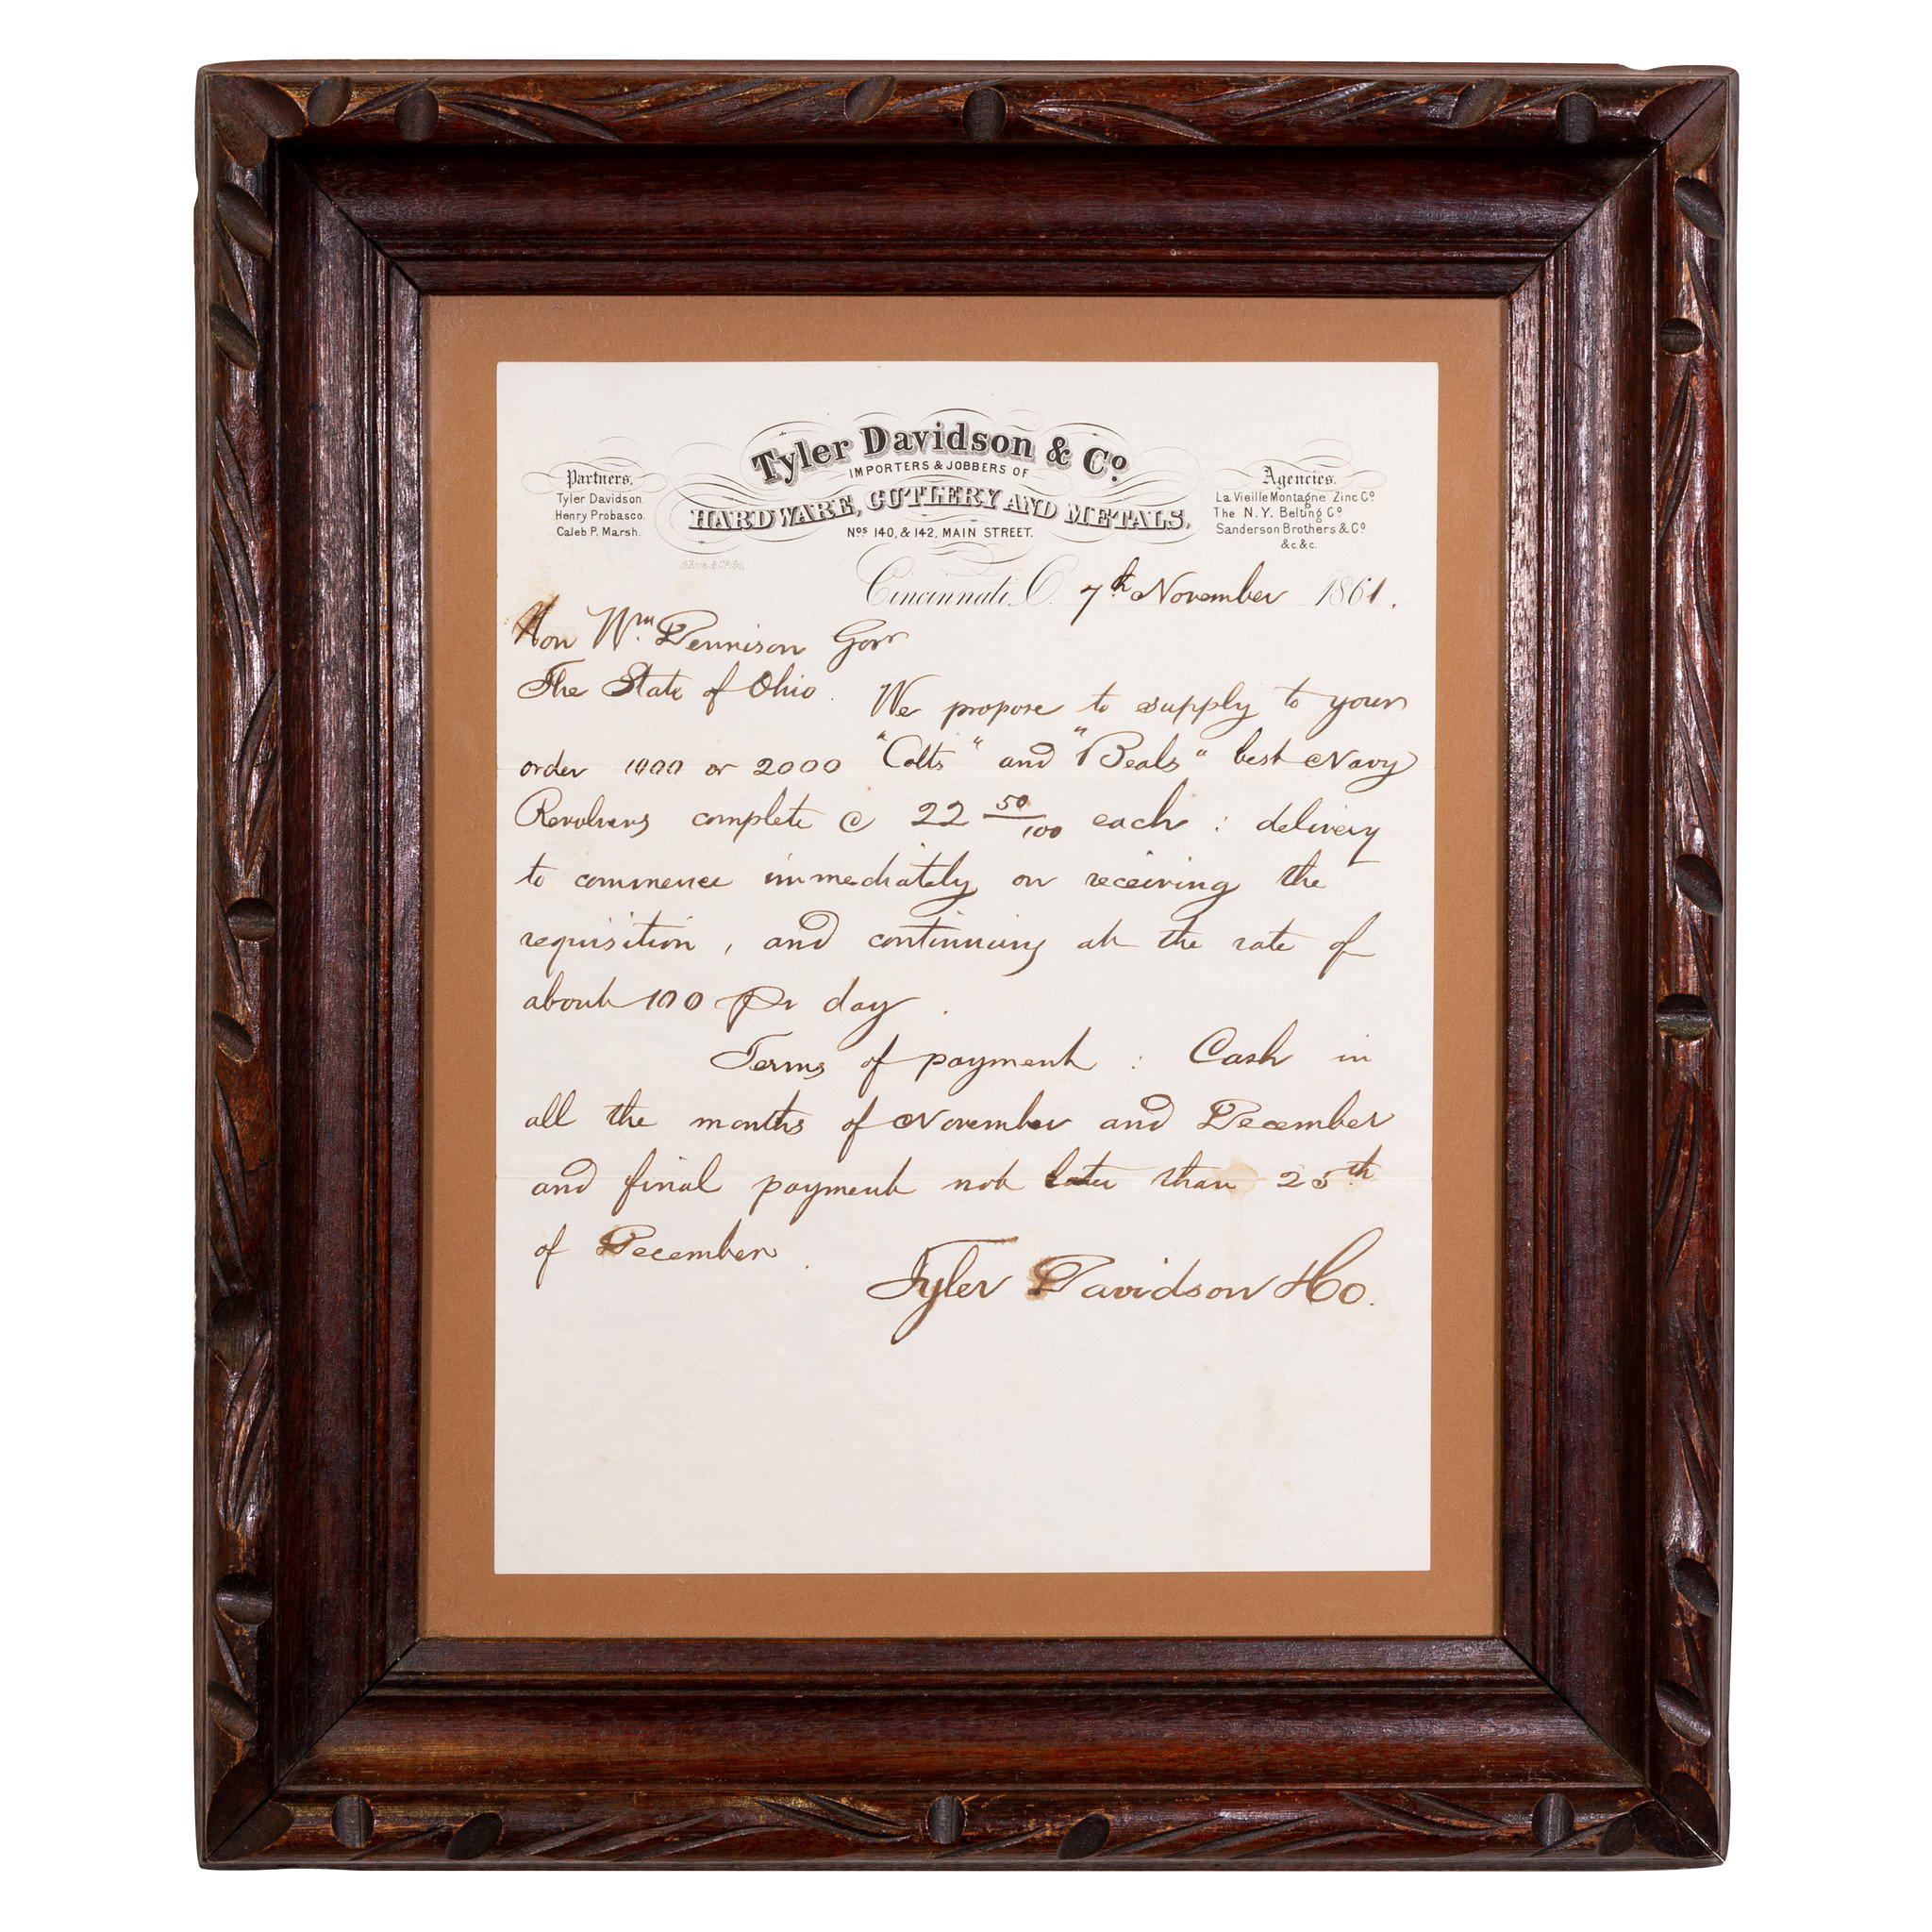 Tyler Davidson & Co.
IMPORTERS & JOBBERS OF
HARDWARE, CUTLERY AND METALS,
Nos 140, & 142, MAIN STREET.
Partners,
Tyler Davidson.
Henry Probasco.
Caleb P. Marsh.
Agencies.
La Vieille Montagne Zinc Co
The N. Y. Belting Co
Sanderson Brothers & Co
&c &c.
Cincinnati, O. 7th November 1861.
Hon Wm Dennison Govr
The State of Ohio.
We propose to supply to your
order 1000 or 2000 "Colts" and "Beals" best Navy
Revolvers complete @ 22 50/100 each : delivery
to commence immediately on receiving the
requisition, and continuing at the rate of
about 100 pr day.
Terms of payment : Cash in
all the months of November and December
and final payment not later than 25th
of December.
Tyler Davidson & Co.